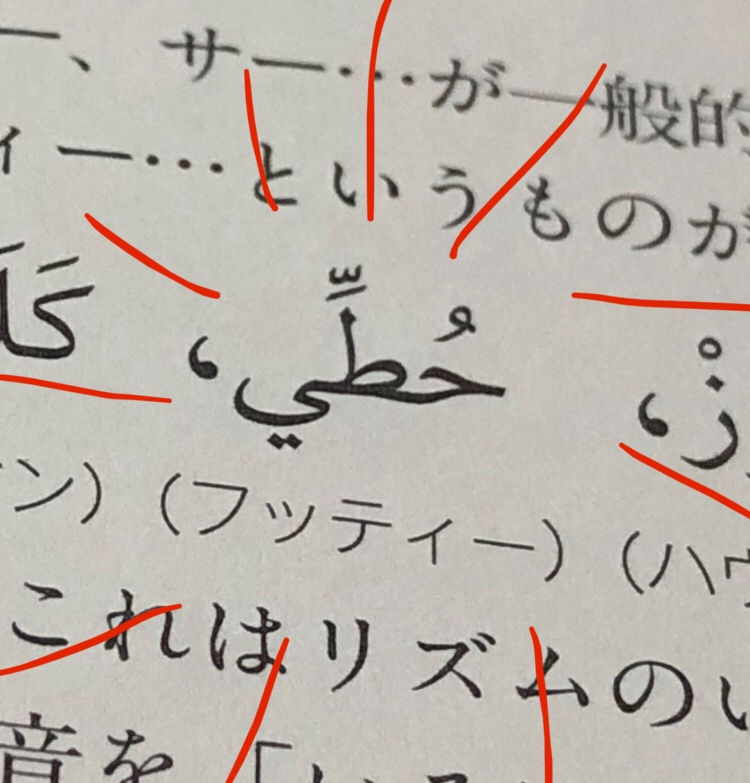 ー、サー…が一般的
ィー…というものが
حُطِّي، كَلَ
ン）（フッティー）（ハウ
これはリズムのい
音を「いろ